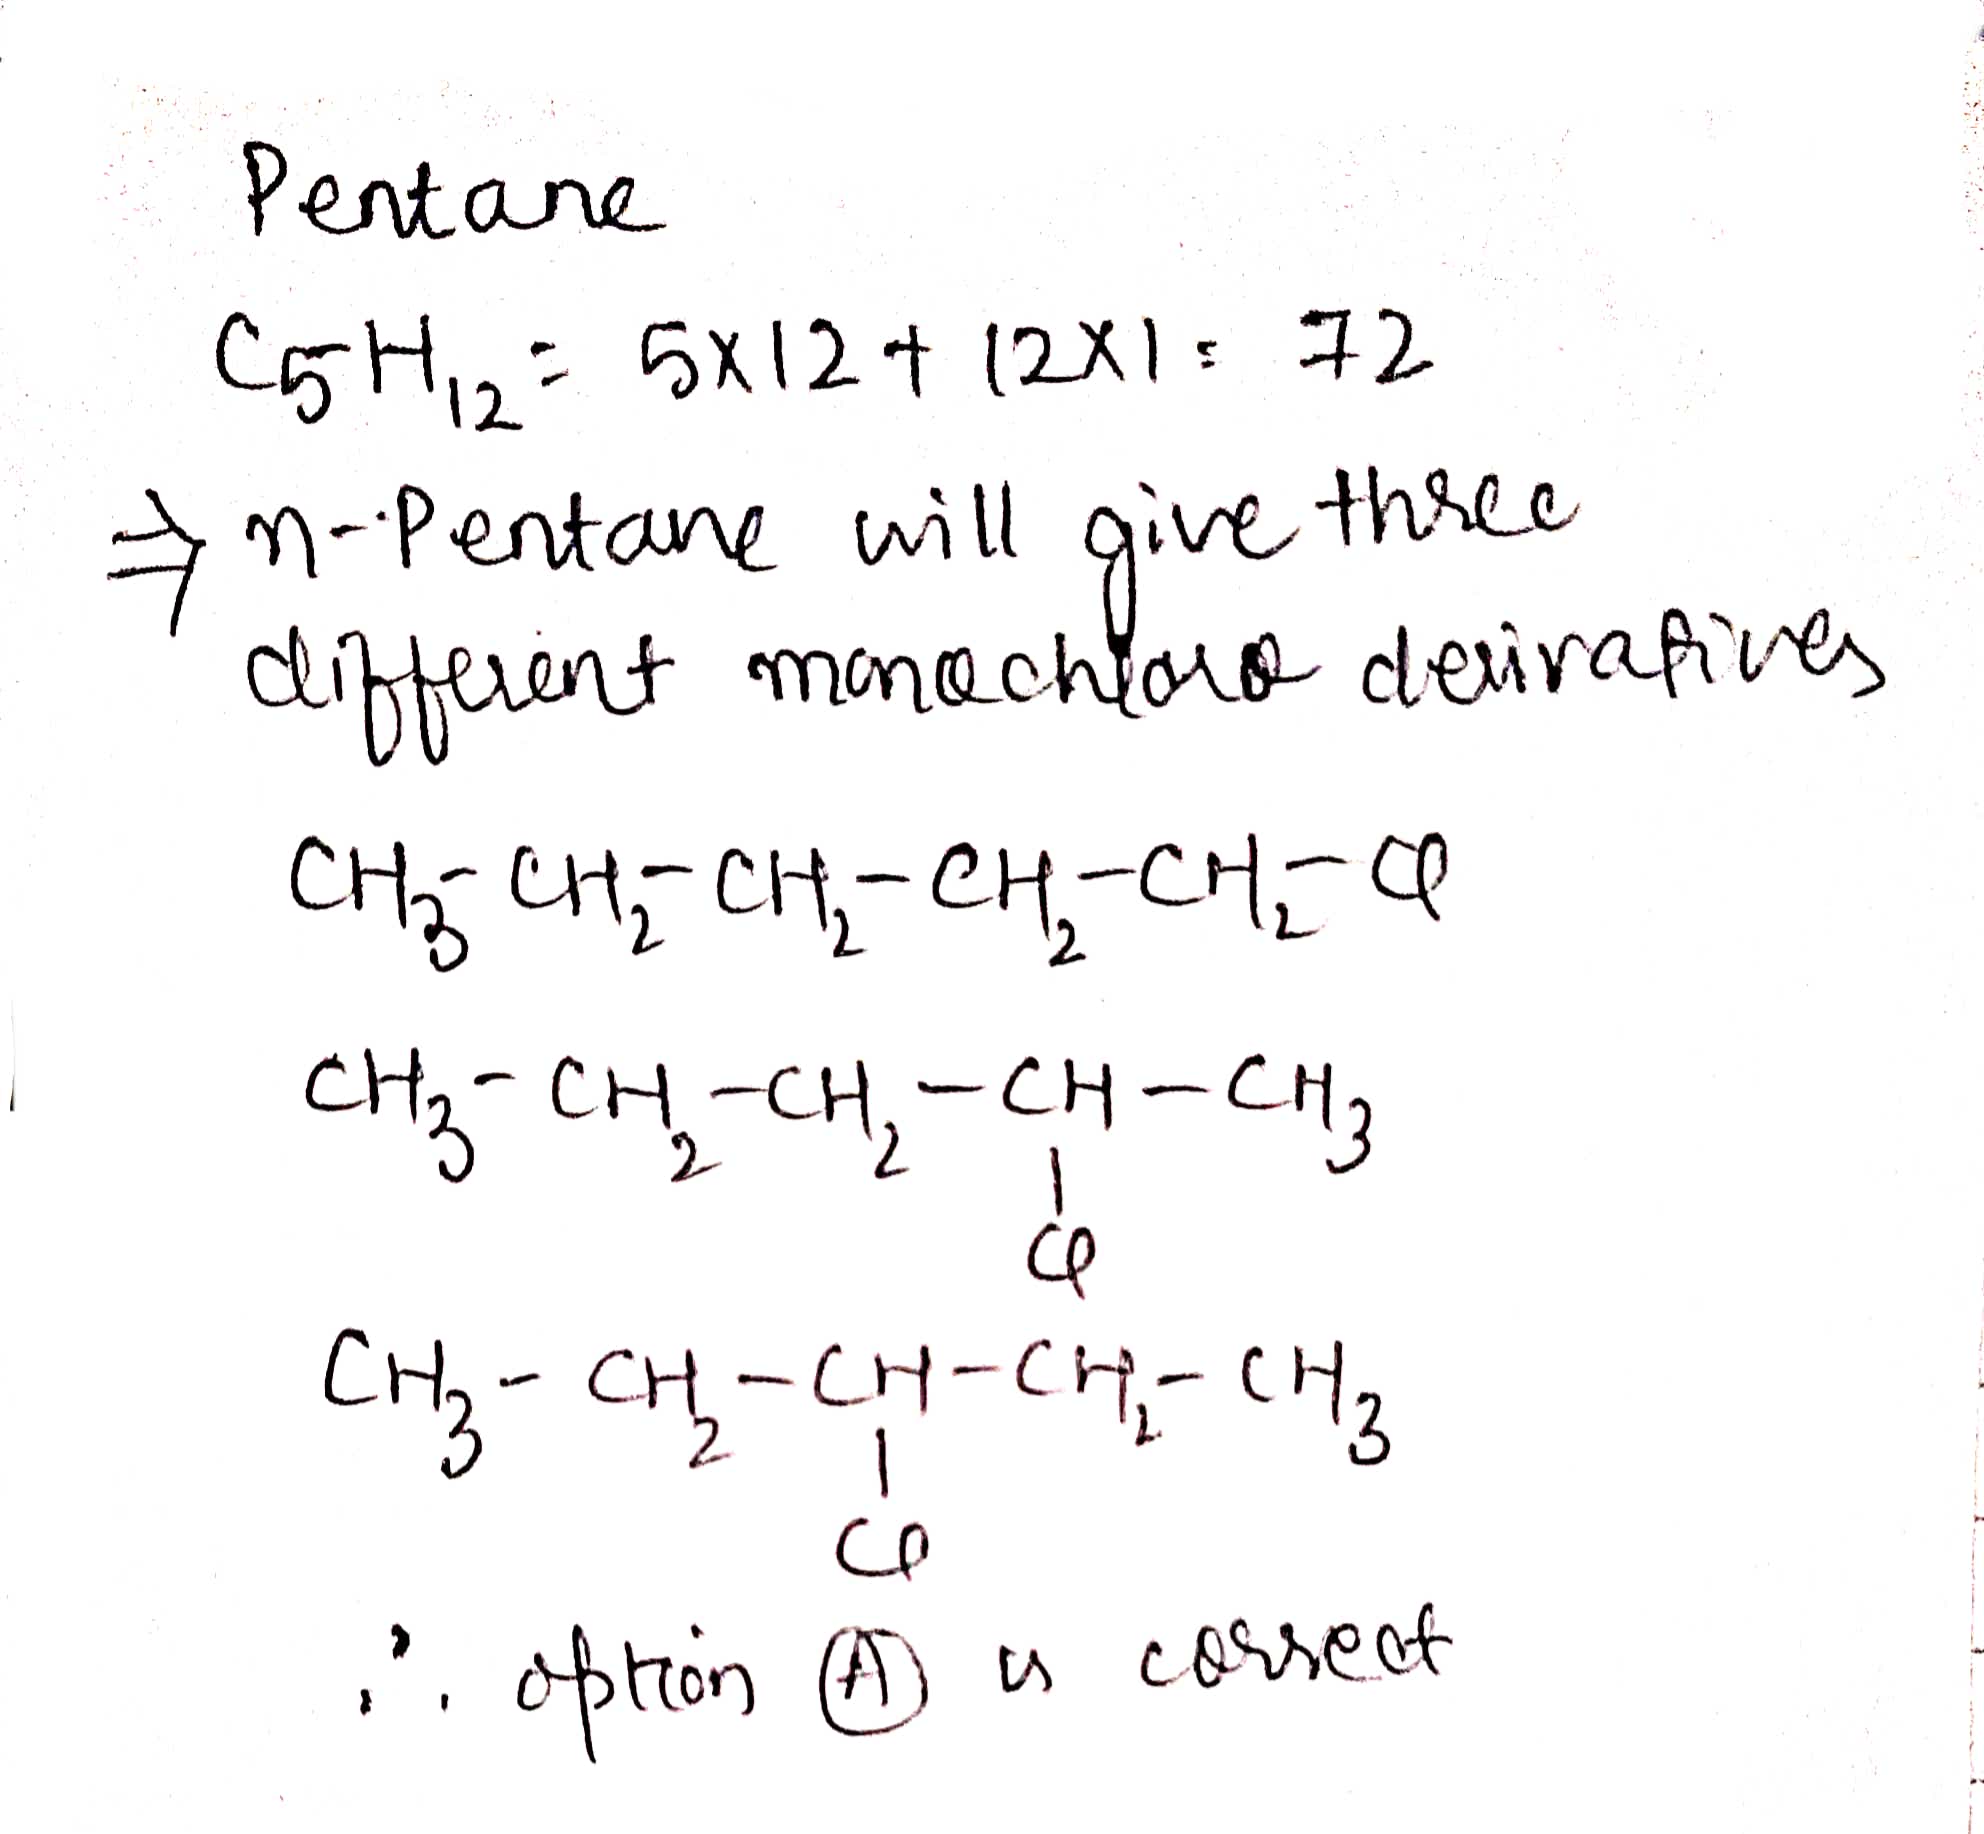 Pentane
C5H12 = 5x12 + 12x1 = 72
⇒ n-Pentane will give three
different monochloro derivatives
CH3-CH2-CH2-CH2-CH2-Cl
CH3-CH2-CH2-CH-CH3
|
Cl
CH3-CH2-CH-CH2-CH3
|
Cl
∴ option (A) is correct